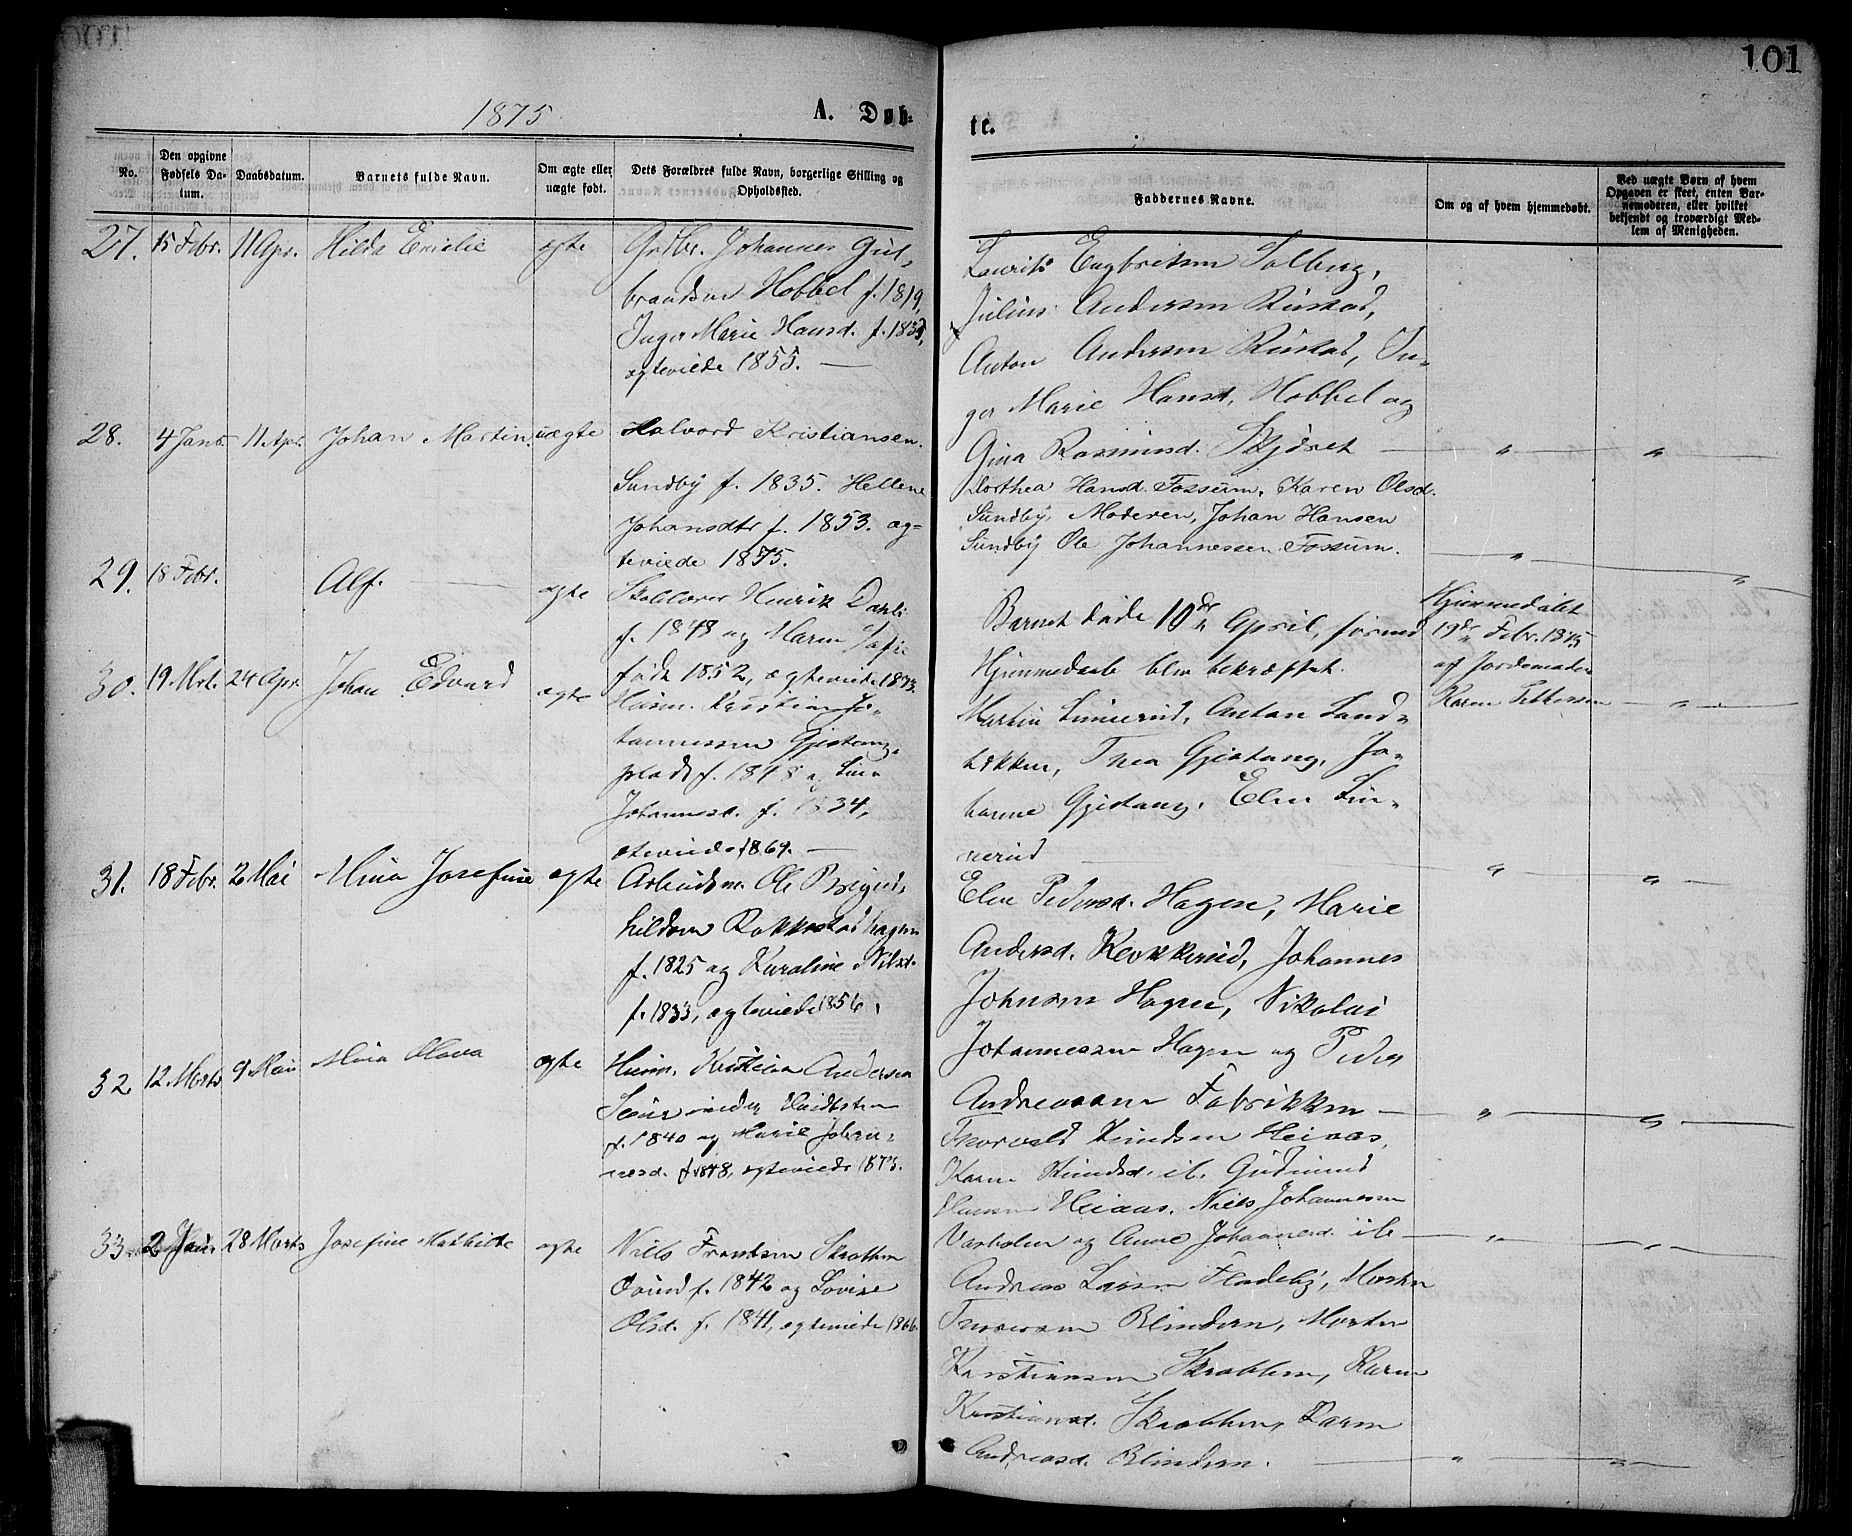 101
1875
A. Døb-
te.
No.
Den opgivne Fødsels Da-tum.
Daabsdatum.
Barnets fulde Navn.
Om ægte eller uægte født.
Dets Forældres fulde Navn, borgerlige Stilling og Opholdssted.
Faddernes Navne.
Om og af hvem hjemmedøbt.
Ved uægte Børn af hvem Opgaven er skeet, enten Bar-nemoderen, eller hvilket bekjendt og troværdigt Med-lem af Menigheden.
27. 15 Febr. 11 Apr. Hilda Emelie ægte
Grdbr. Johannes Gul-
brandsen Hobbel f. 1819,
Inger Marie Hansd. f. 1833,
ægteviede 1855. —
Laurits Engbretsen Solberg,
Julius Andersen Rustad,
Anton Andersen Rustad, In-
ger Marie Hansd. Hobbel og
Gina Rasmusd. Skjøret — " — "
28. 4 Janr 11 Apr. Johan Martin. uægte
Halvord Kristiansen.
Sundby f. 1835. Hellene
Johansdtr f. 1853. æg-
teviede 1875.
Dorthea Hansd. Fossum, Karen Olsd.
Sundby, Moderen, Johan Hansen
Sundby Ole Johannessen Fossum. — " — "
29. 18 Febr. Alf. — ægte
Henrik Dahl
f. 1848 og Maren
født 1852, ægteviede 1873.
Barnet døde 10de April, førend
Hjemmedaab blev bekræftet.
Hjemmedøbt
19de Febr. 1875
af Jordemoder
Karen — " —
30. 19 Mrt. 24 Apr. Johan Edvard ægte
Husm. Kristian Jo-
hannessen Gjestang-
plads f. 1848 og Lina
Johannesd. f. 1834,
ægteviede 1869. —
Martin Linnerud, Anton Sand-
bækken, Thea Gjestang, Jo-
hanne Gjestang, Elen Lin-
nerud — " — " —
31. 18 Febr. 2 Mai Mina Josefine ægte
Arbeidsm. Ole
Rakkestadhagen
f. 1825 og Karoline Nilsd.
f. 1833, ægteviede 1856.
Elen Pedersd. Hagen, Marie
Andersd. Krokkerud, Johannes
Johnsen Hagen, Nikolai
Johannessen Hagen og Peder
Andreassen Fabrikken — " — " —
32. 12 Marts 9 Mai Mina Olava ægte
Husm. Kristian Andersen
under
f. 1840 og Marie Johan-
nesd. f. 1848, ægteviede 1873.
Thorvald Knudsen Heiaas,
Karen Knudsd. ib. Gudmund
Hansen Heiaas, Niels Johannessen
Vasholen og Anne Johannesd. ib — " — " —
33. 2 Janr 28 Marts Josefine Mathilde ægte
Niels Frantsen Skrabben
f. 1842 og Lovise
Olsd. f. 1841, ægteviede 1866.
Andreas Larsen Fladeby, Morten
Thoresen Blindern, Morten
Kristiansen Skrabben, Karen
Kristiansd. Skrabben, Karen
Andreasd. Blindern. — " — " —